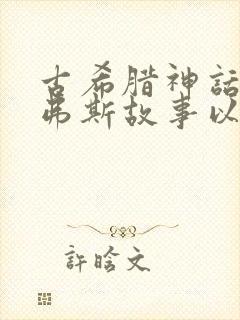 古希腊神話
弗斯故事以
許晗文